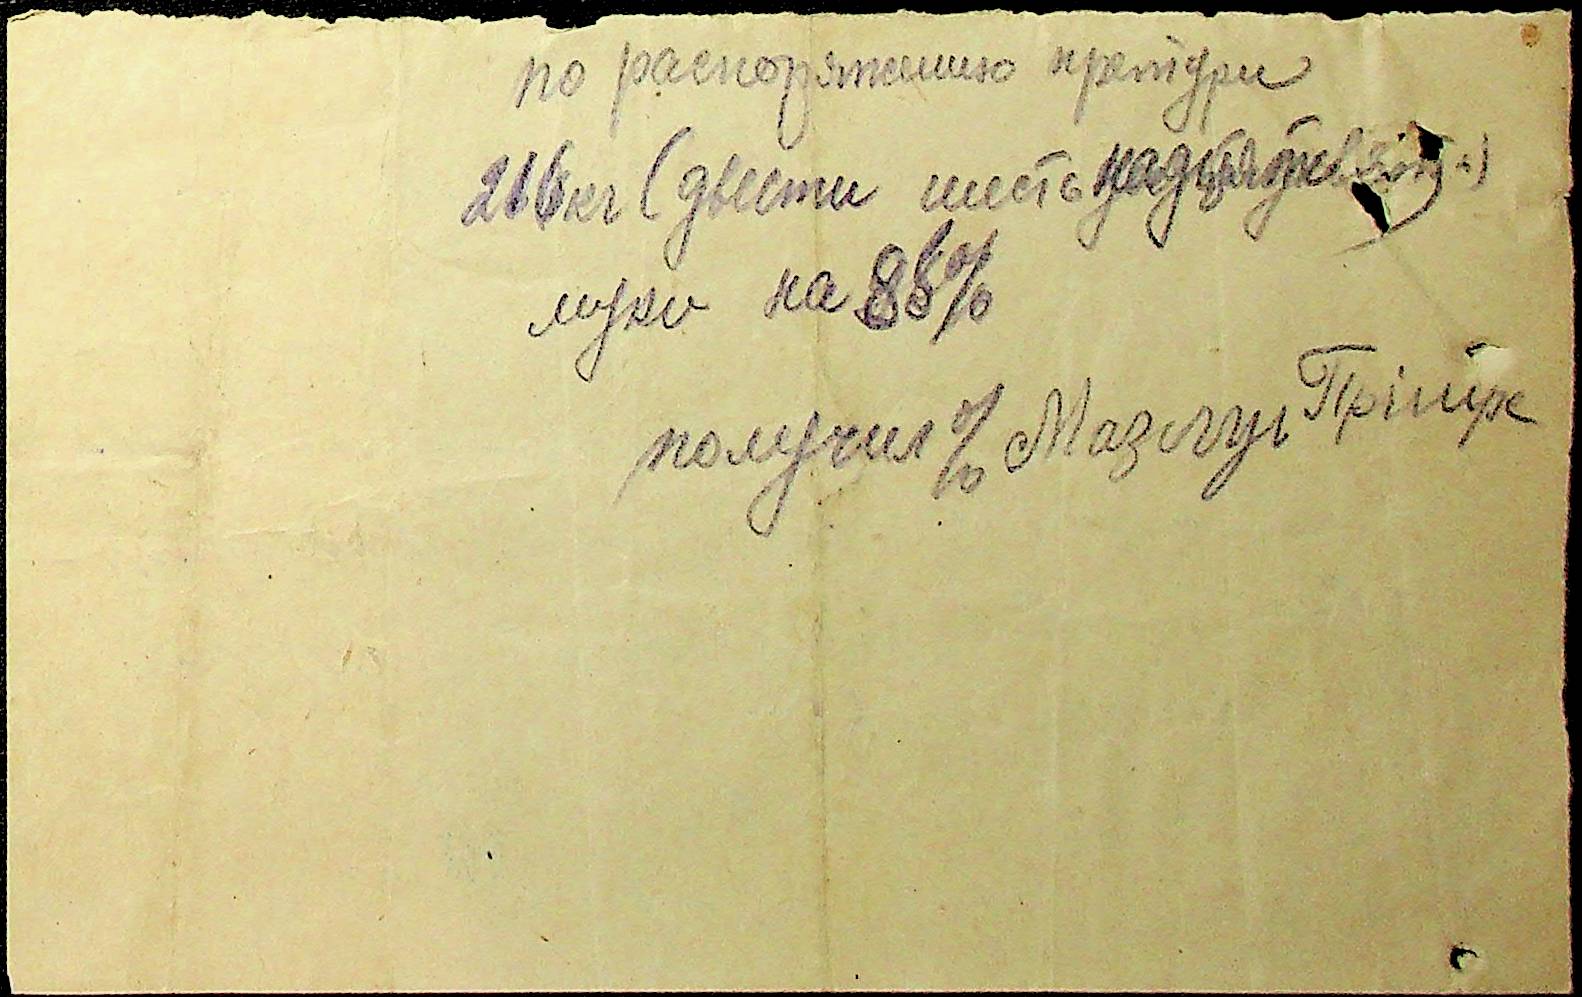 по распоряжению претури
216 кг (двести шестьнадцять
муки на 85%
получил % Мазлур